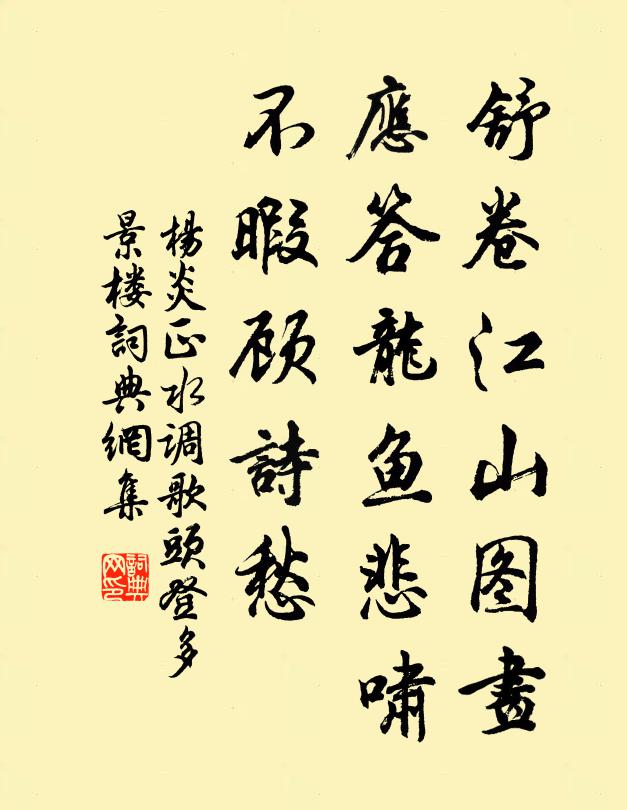 舒卷江山图畫
應答龍鱼悲嘯
不暇顾詩愁
楊炎正水调歌頭登多
景楼詞典網集
詞典網印